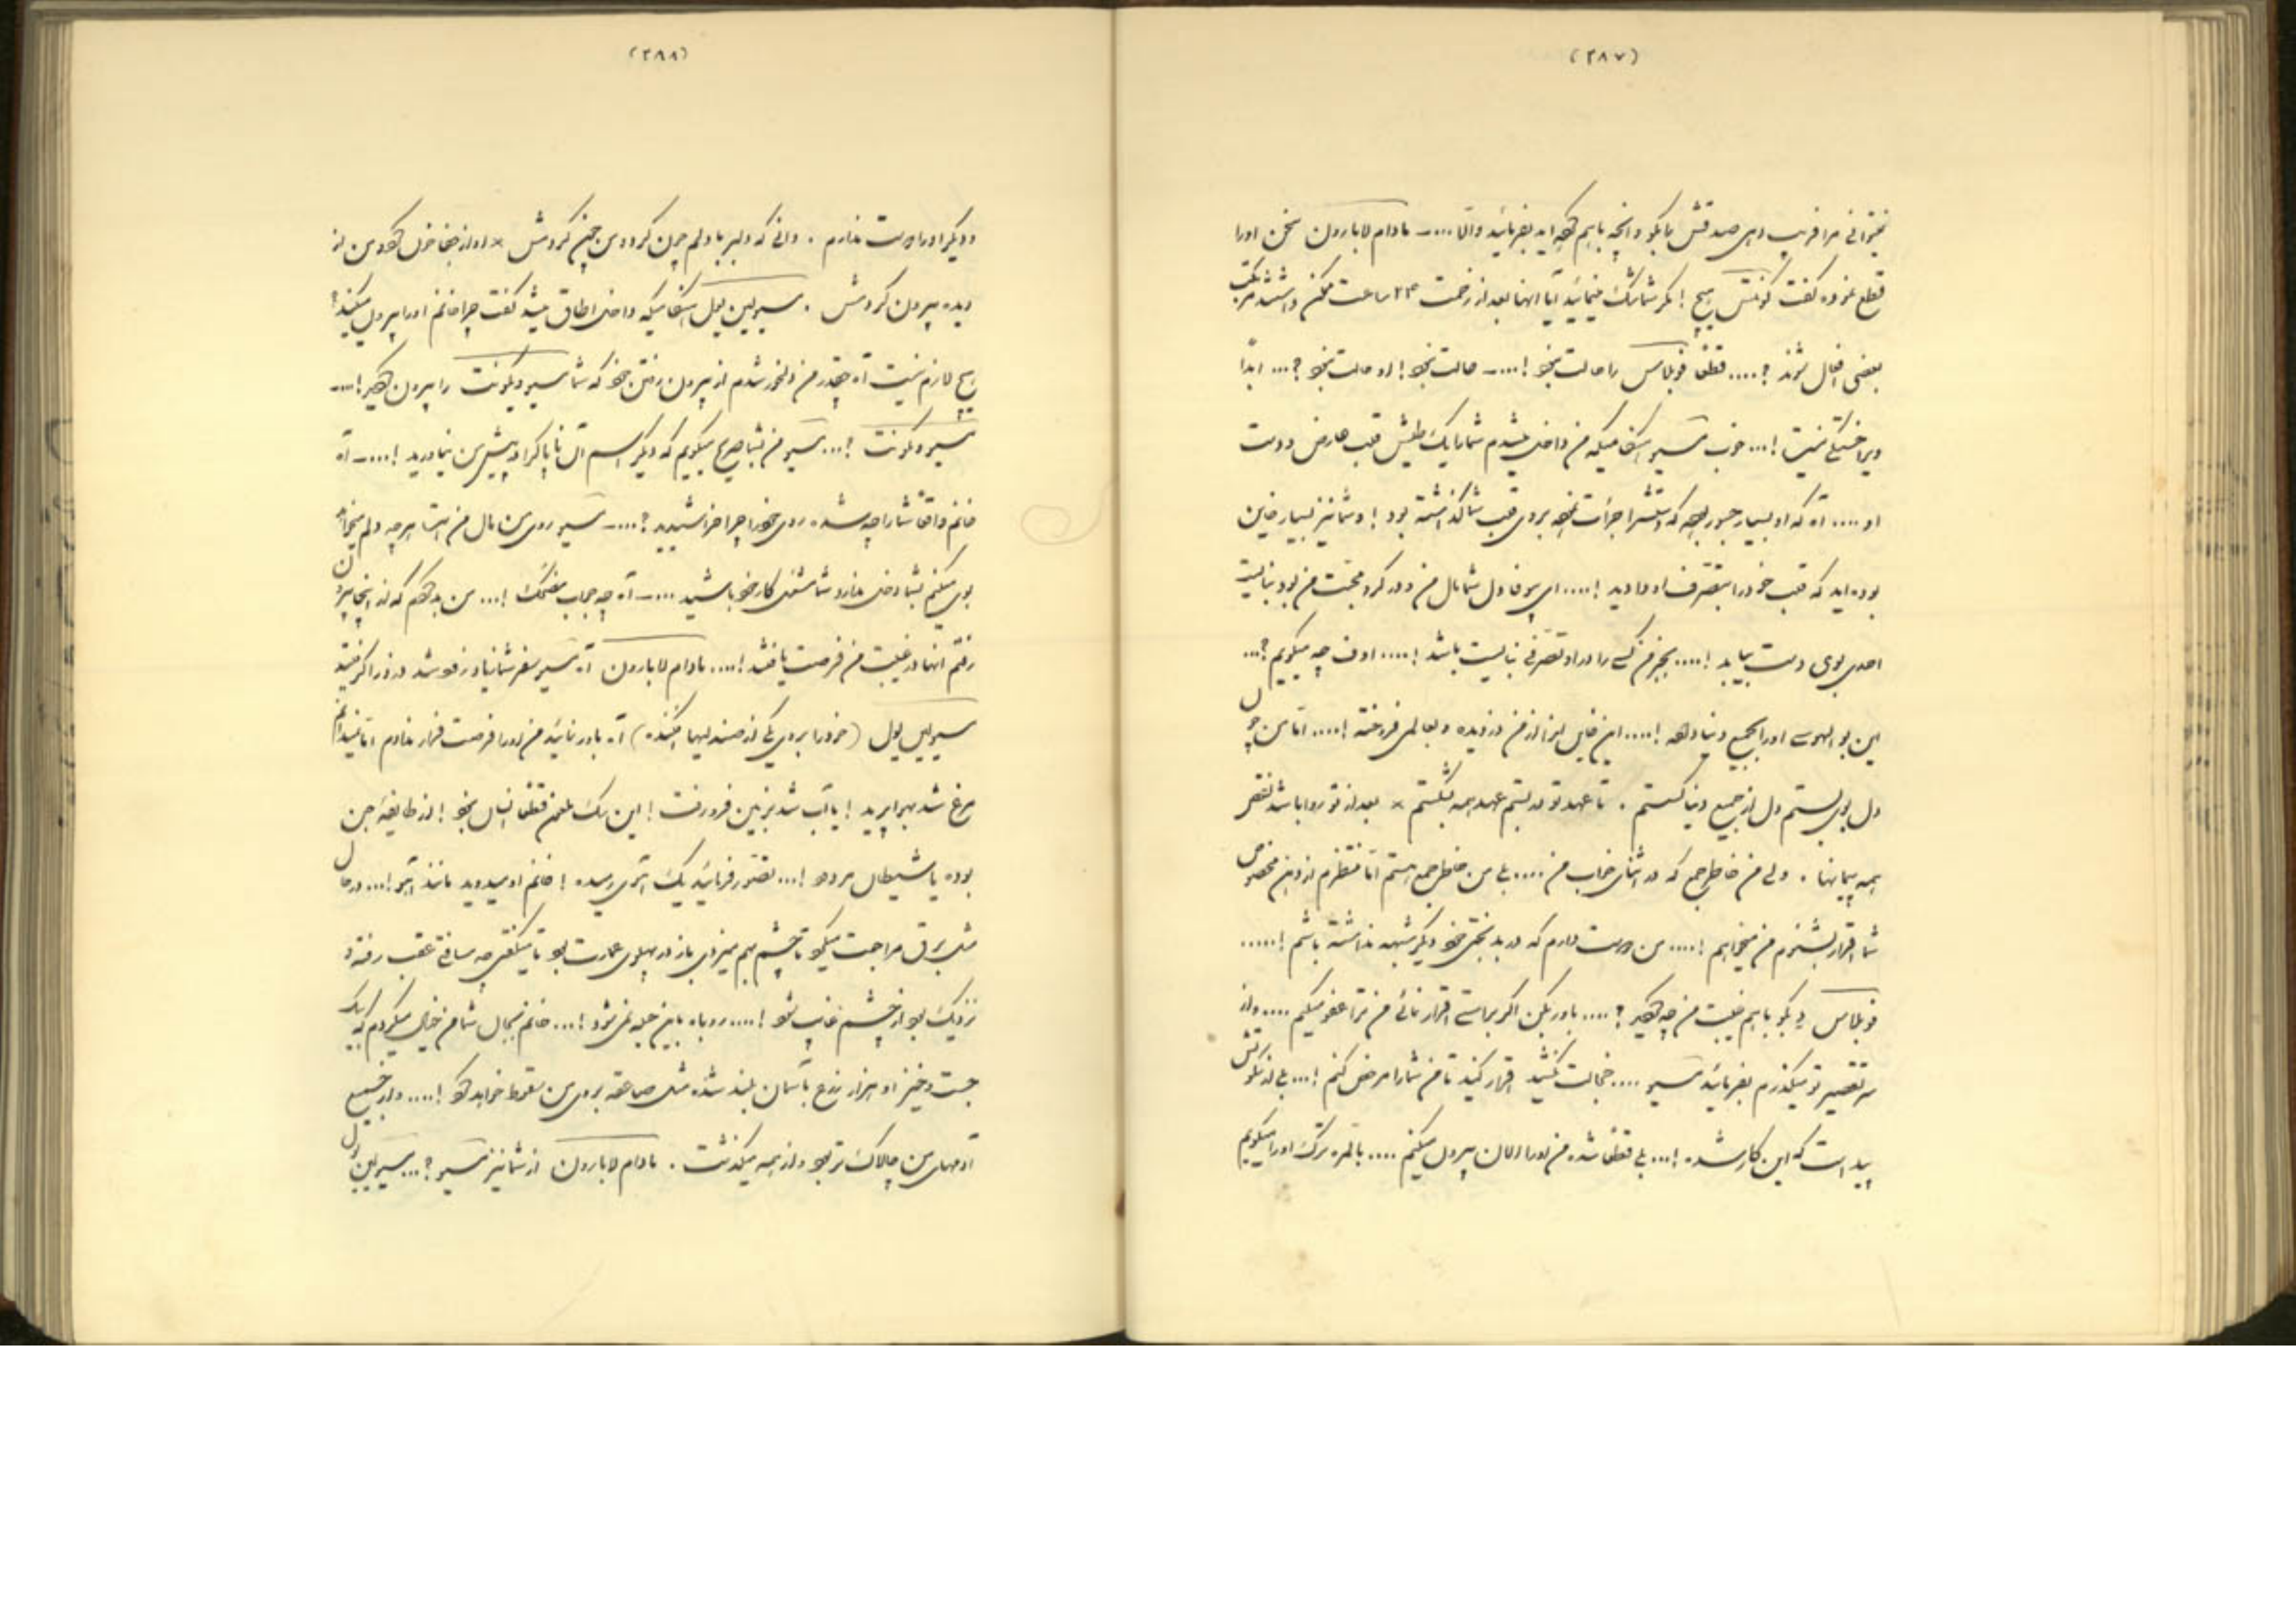 (۲۸۷)
نمیتوانی مرا فریب دهی صدقش را بگو و آنچه باهم کرده اید بفرمائید والّا .... ـ مادام لابارون سخن او را
قطع نموده گفت کونتس هیچ ! مگر شما شک مینمائید آیا آنها بعد از زحمت ۲۴ ساعت ممکن داشتند مرتکب
بعضی افعال شوند ؟ .... قطعاً فوبلاس را حالت نبود ! .... ـ حالت نبود ! او حالت نبود ؟ ... ابداً
ویرا خستگی نیست ! ... خوب مسیو هنگامیکه من داخل میشدم شما را یک طپش قلب عارض و دست
او .... آه که او بسیار جسور بوده که دستش را جرأت نموده بروی قلب شما گذاشته بود ! و شما نیز بسیار خاین
بوده اید که قلب خود را بتصرف او دادید ! .... ای بیوفا دل شما مال من و در گرو محبت من بود نبایست
احدی بوی دست بیابد ! .... بجز من کسی را در او تصرفی نبایست باشد ! .... اوف چه میگویم ؟ ...
این بوالهوس او را بجمیع دنیا داده ! .... این خاین او را از من دزدیده و بعالمی فروخته ! .... امّا من چو
دل بوی بستم دل از جمیع دنیا گسستم . تا عهد تو در بستم عهد همه بشکستم × بعد از تو روا باشد نقض
همه پیمانها . ولی من خاطر جمع که در اثنای خواب من .... بلی من خاطر جمع هستم امّا منتظرم از دهن مخصوص
شما اقرار بشنوم من میخواهم ! .... من دوست دارم که در بدبختی خود دیگر شبهه نداشته باشم ! .....
فوبلاس بگو باهم غیبت من چه کردید ؟ .... باور بکن اگر براستی اقرار نمائی من ترا عفو میکنم .... و از
سر تقصیر تو میگذرم بفرمائید مسیو .... خجالت نکشید اقرار کنید تا من شما را مرخص کنم ! ... بلی از سکوتش
پیداست که این کار شده ! ... بلی قطعاً شده من او را الان بیرون میکنم .... بالمره ترک او را میگویم
(۲۸۸)
و دیگر او را دوست ندارم . دانی که دلبر با دلم چون کرد و من چون کردمش × او از جفا خون کرد و من از
دیده بیرون کردمش . مسیو لین یول هنگامیکه داخل اطاق میشد گفت چرا خانم او را بیرون میکنید ؟
هیچ لازم نیست آه چقدر من دلخور شدم از بیرون رفتن خود که شما مسیو دیکونت را بیرون کردید ! .... ـ
مسیو دیکونت ! ... مسیو من بشما صریح میگویم که دیگر اسم آن ناپاک را در پیش من نیاورید ! .... ـ آه
خانم واقعاً شما را چه شده روی خود را چرا خراشیدید ؟ .... ـ مسیو روی من مال من است هر چه دلم میخواهد
بوی میکنم بشما دخلی ندارد شما مشغول کار خود باشید .... ـ آه چه جواب مضحک ! ... من بد کردم که از اینجا بیرون
رفتم آنها در غیبت من فرصت یافتند ! .... مادام لابارون آه مسیو سفر شما زیاد نشد در دوراکر رفتید
مسیو لین یول ( خود را بروی یکی از صندلیها افکنده ) آه باور نمائید من او را فرصت فرار ندادم امّا نمیدانم
مرغ شد بهوا پرید ! یا آب شد بزمین فرو رفت ! این سگ ملعون قطعاً انسان نبود ! از طایفه جن
بوده یا شیطان مردود ! ... تصور فرمائید یک آهوی رمیده ! خانم او میدوید مانند آهو ! ... در حال
مثل برق مراجعت میکرد تا چشم بهم میزدی باز در پهلوی عمارت بود تا میگفتی چه مسافتی عقب رفته و
نزدیک بود از چشم غایب شود ! .... روباه باین حیله نمیشود ! ... خانم بجان شما من خیال میکردم که بیک
جست و خیز او هزار ذرع بآسمان بلند شده مثل صاعقه بروی من سقوط خواهد کرد ! .... و از جمیع
آدمهای من چالاک تر بود و از همه میگذشت . مادام لابارون از شما نیز مسیو ؟ ... مسیو لین یول